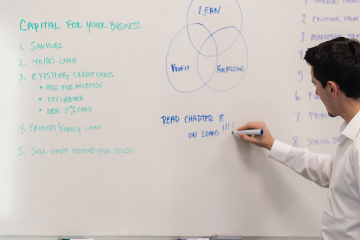 CAPITAL FOR YOUR BUSINESS
1. SAVINGS
2. 401(K) LOAN
3. EXISTING CREDIT CARDS
• ASK FOR INCREASE
• REFINANCE
• NEW 0% CARD
4. FRIENDS/FAMILY LOAN
5. SELL STUFF AROUND YOUR HOUSE
LEAN
PROFIT
FULFILLING
READ CHAPTER 8
ON LOANS!!!
1.
2.
3.
4
5
6.
7
8.